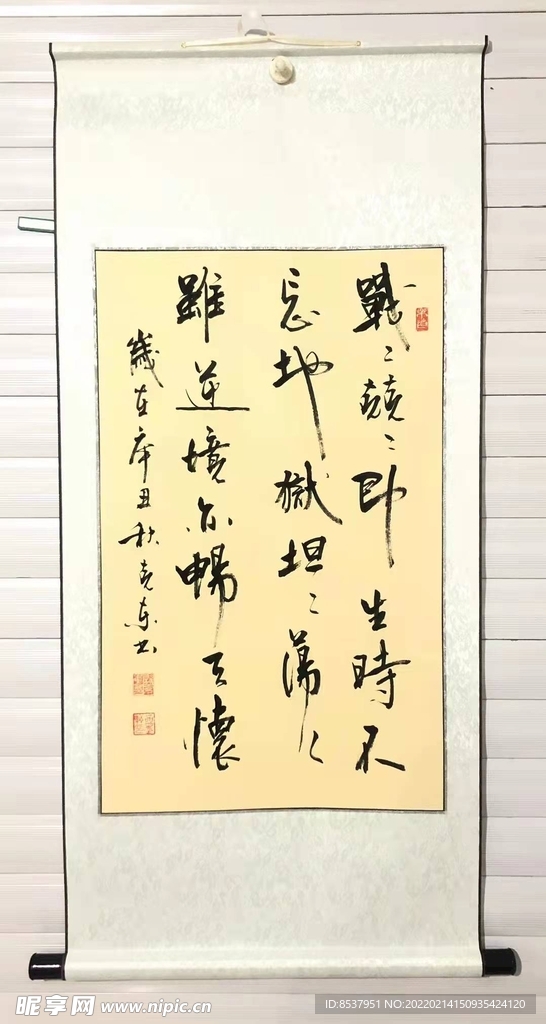 戰〻兢〻即生時不
忘地獄坦〻蕩〻
雖逆境亦暢天懷
歲在辛丑秋 书
昵享网 www.nipic.cn
ID:8537951 NO:20220214150935424120